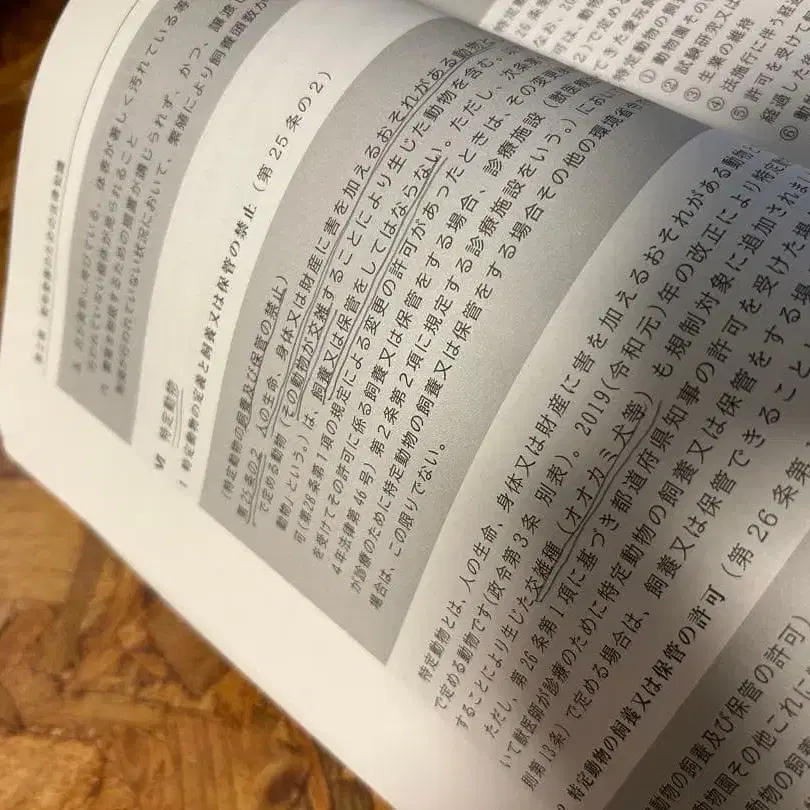 る。爪が異常に伸びている、体表が著しく汚れている等
行われていない個体が見られること
繁殖を制限するための措置が講じられず、かつ、譲渡し
が行われていない状況において、繁殖により飼養頭数が
Ⅵ 特定動物
1 特定動物の定義と飼養又は保管の禁止（第25条の2）
（特定動物の飼養及び保管の禁止）
第25条の2 人の生命、身体又は財産に害を加えるおそれがある動物
で定める動物（その動物が交雑することにより生じた動物を含む。
動物」という。）は、飼養又は保管をしてはならない。ただし、次条第
可（第28条第1項の規定による変更の許可があったときは、その変更
を受けてその許可に係る飼養又は保管をする場合、診療施設（獣医療
4年法律第46号）第2条第2項に規定する診療施設をいう。）におい
が診療のために特定動物の飼養又は保管をする場合その他の環境省令
場合は、この限りでない。
特定動物とは、人の生命、身体又は財産に害を加えるおそれがある動物と
で定める動物です（政令第3条 別表）。2019（令和元）年の改正により特定動
することにより生じた交雑種（オオカミ犬等）も規制対象に追加されま
ただし、第26条第1項に基づき都道府県知事の許可を受けた場
いて獣医師が診療のために特定動物の飼養又は保管をする場
則第13条）で定める場合は、飼養又は保管できること
特定動物の飼養又は保管の許可（第26条第
動物の飼養及び保管の許可）
動物園その他これに
動物の飼養
① 動物園その
② 試験研究又は
③ 生業の維持
④ 法施行に伴う経過
⑤ 許可を受けて
経過した
⑥